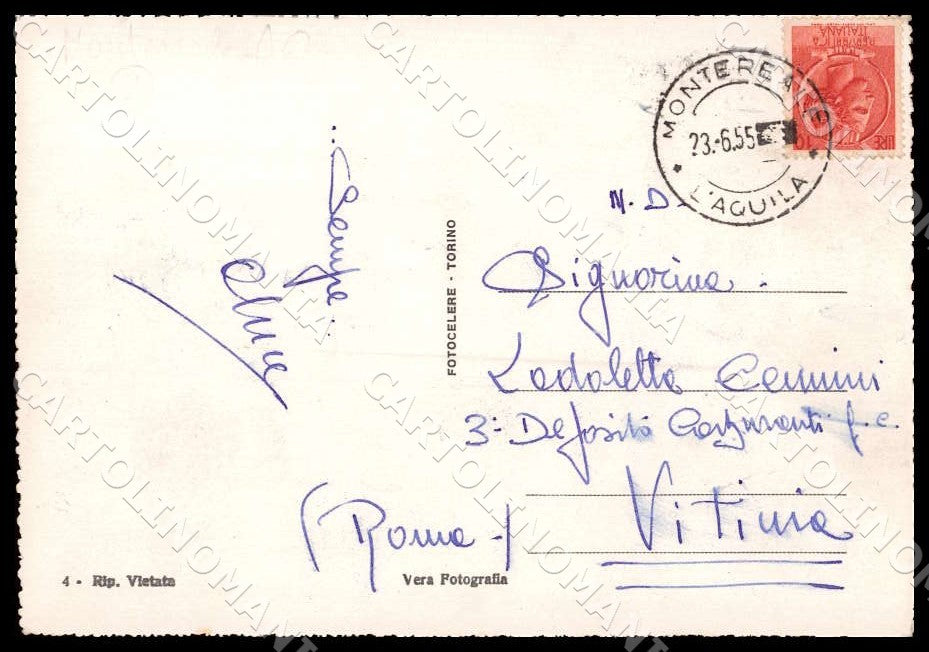 REPUBBLICA ITALIANA
LIRE 10
MONTEREALE
23.-6.55
* L'AQUILA *
N. D.
Signorina
Lodoletta
3° Deposito Carburanti f. c.
Vitinia
(Roma)
... Sempre ...
FOTOCELERE - TORINO
4 - Rip. Vietata
Vera Fotografia
CARTOLINOMANIA